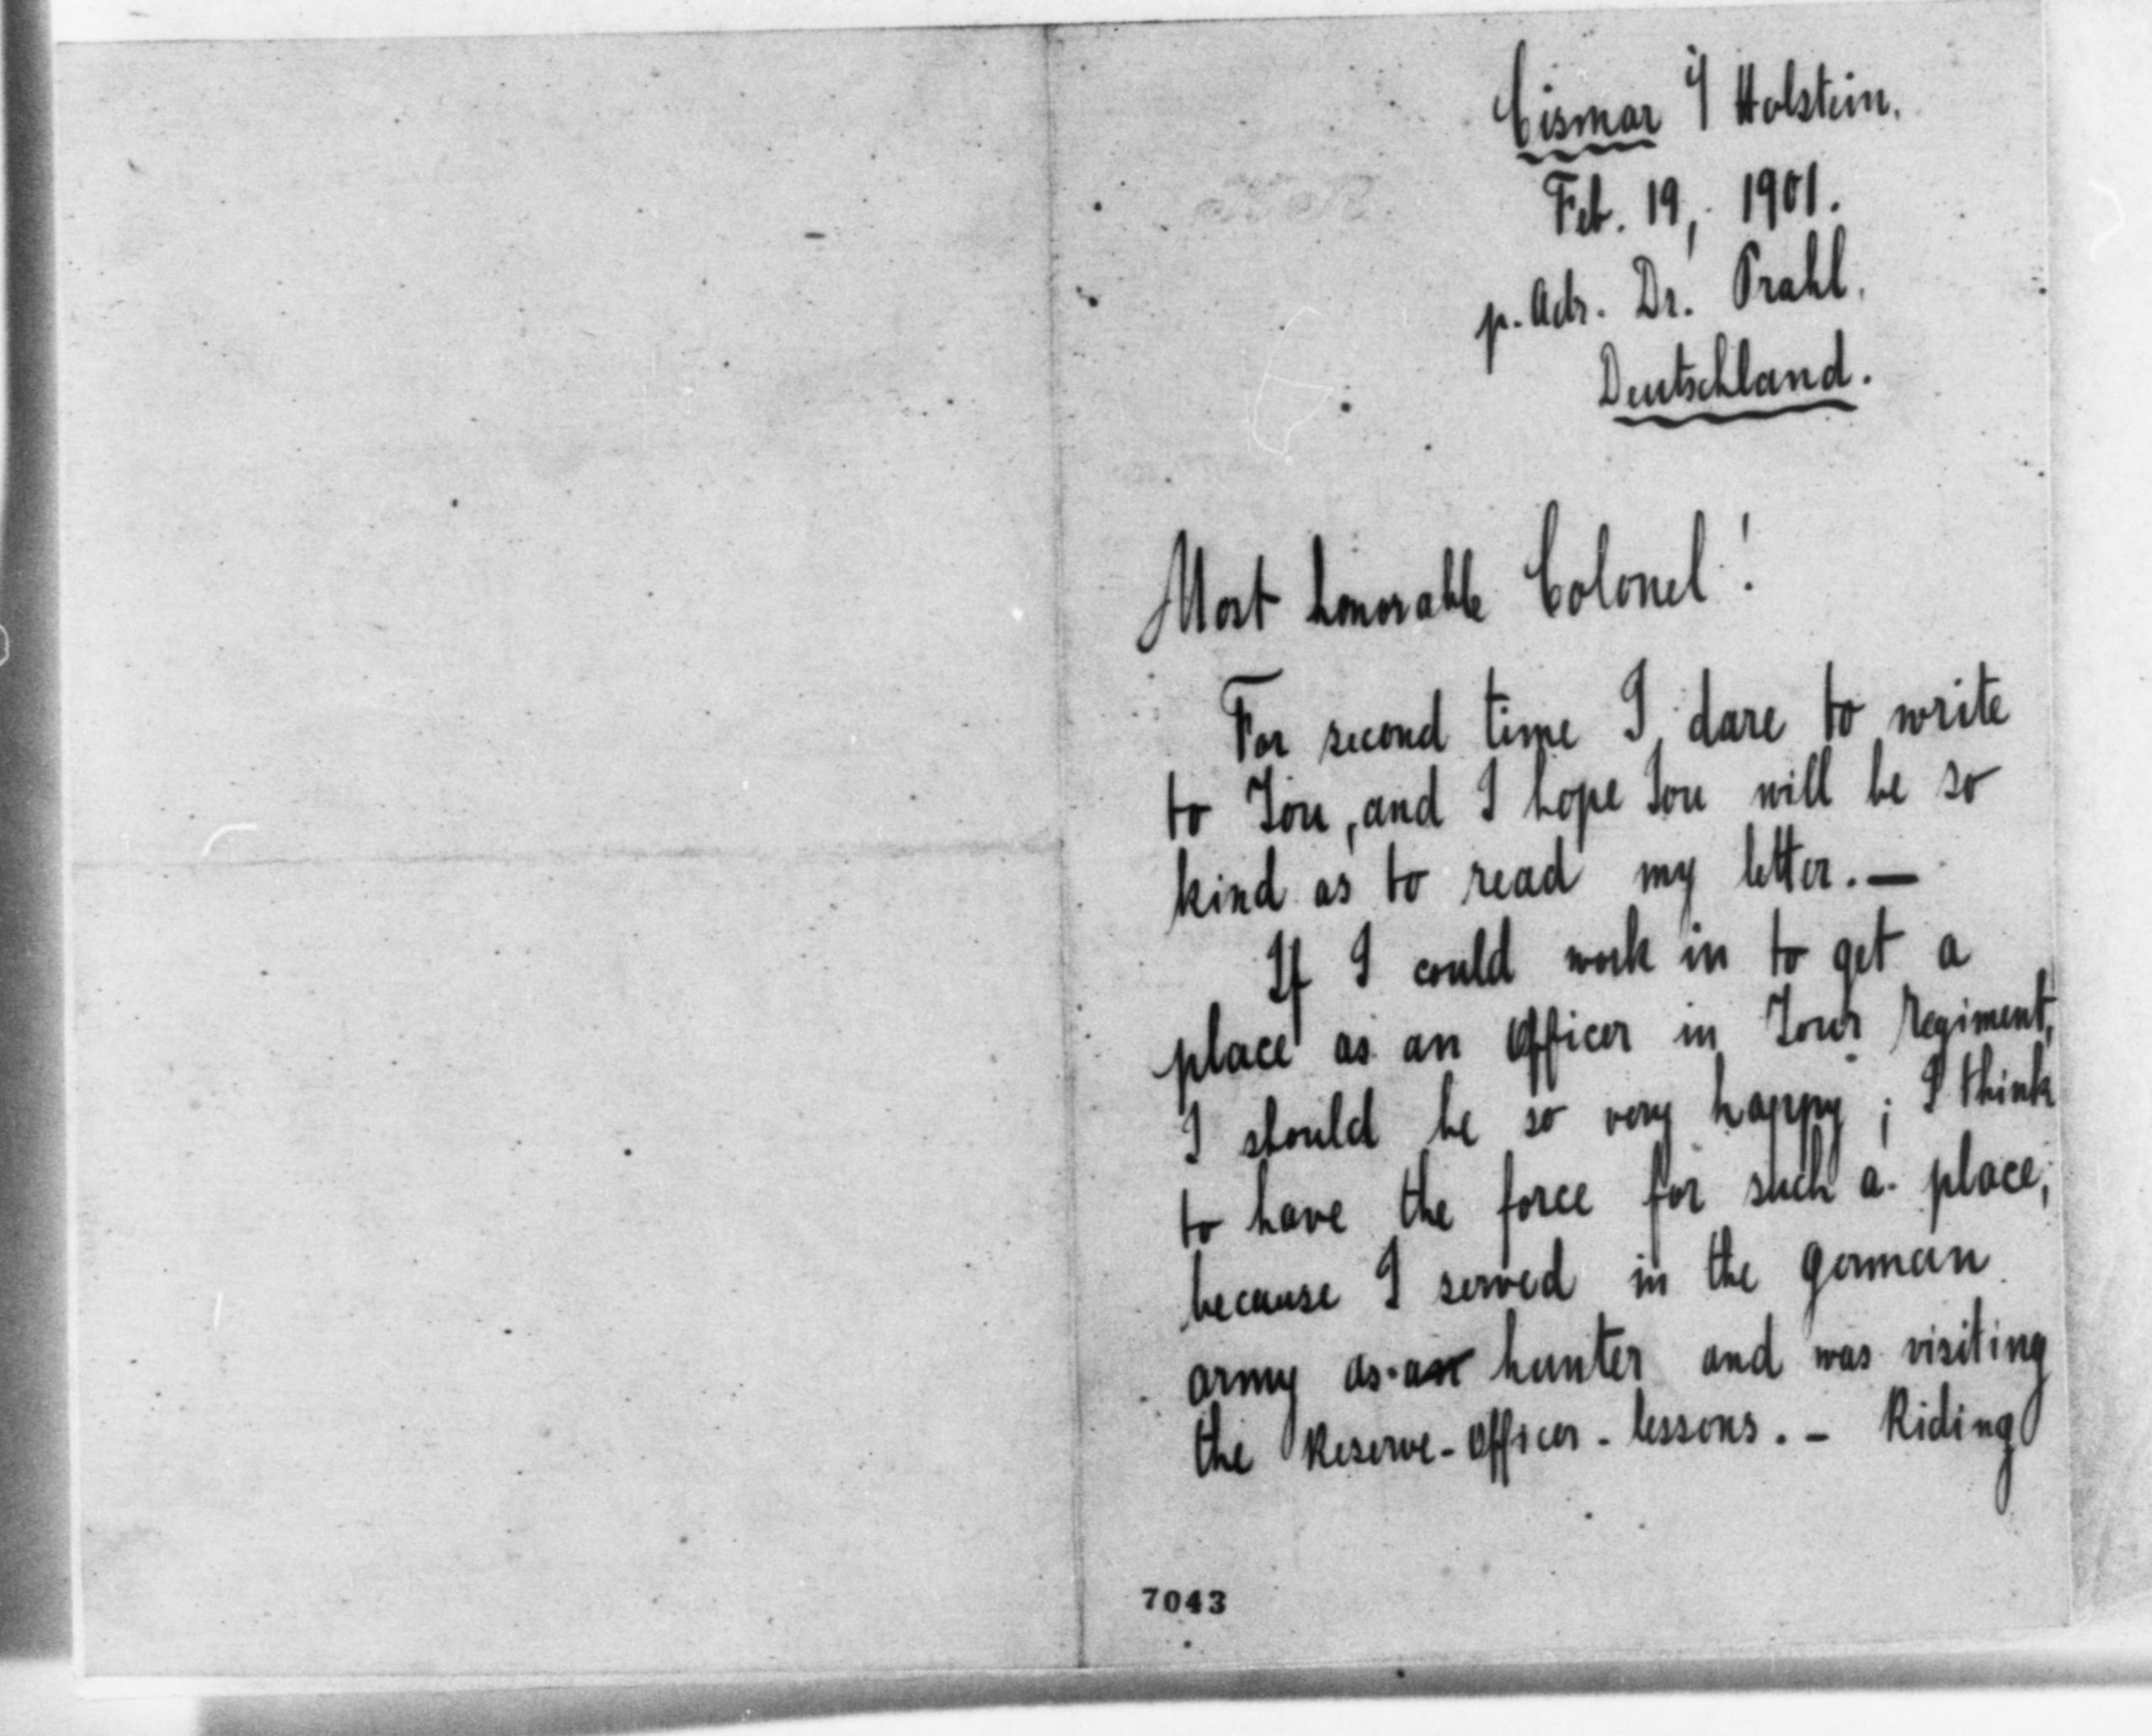 Cismar i/ Holstein.
Feb. 19, 1901.
p. Adr. Dr. Prahl.
Deutschland.
Most honorable Colonel!
For second time I dare to write
to You, and I hope You will be so
kind as to read my letter. —
If I could work in to get a
place as an Officer in Your Regiment,
I should be so very happy; I think
to have the force for such a place,
because I served in the german
army as a hunter and was visiting
the Reserve-Officer-lessons. – Riding
7043